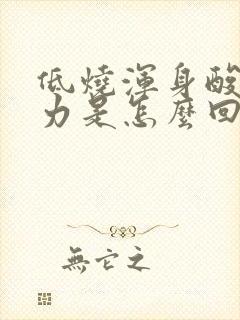 低燒渾身酸
力是怎麼回
無它之